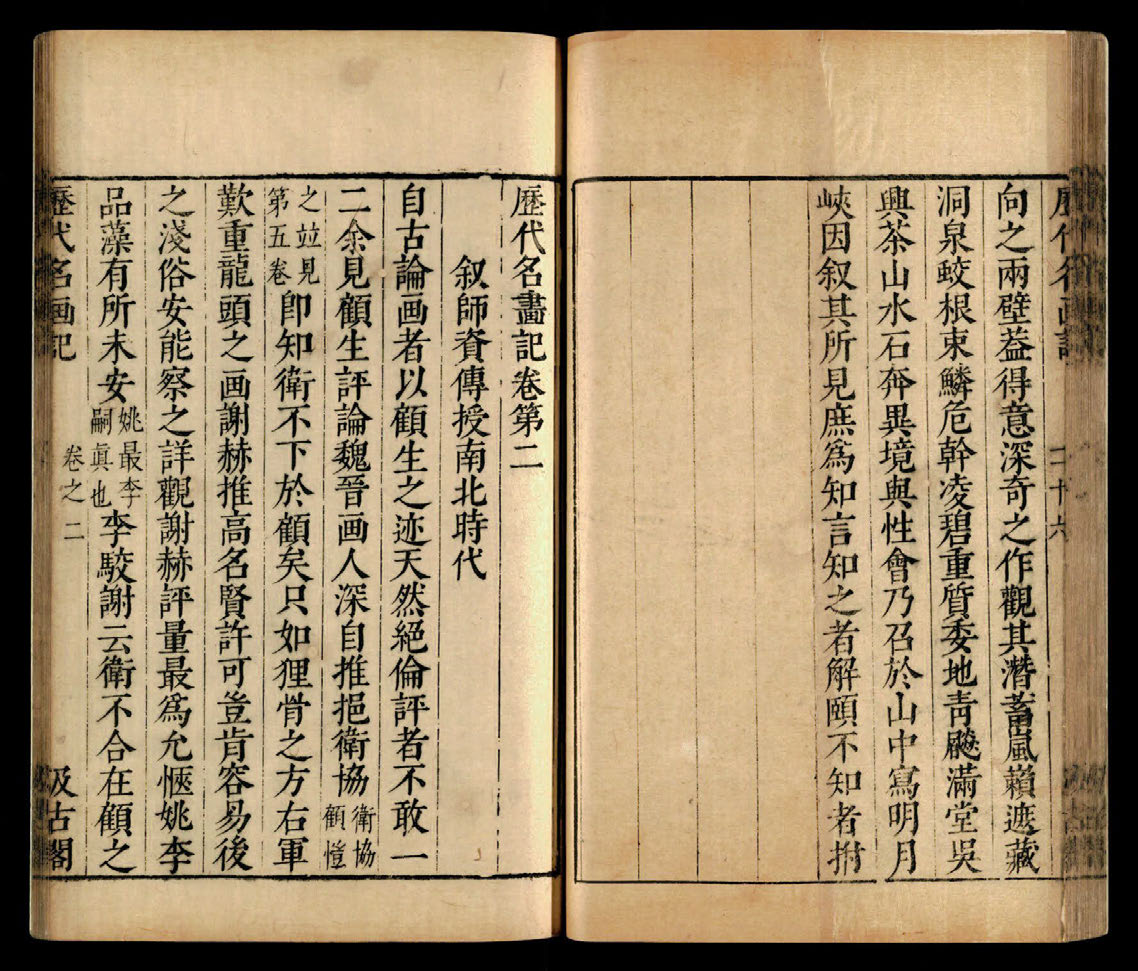 歷代名画記 二十六
向之兩壁蓋得意深奇之作觀其潛蓄嵐瀨遮藏
洞泉蛟根束鱗危幹凌碧重質委地靑飈滿堂吳
興茶山水石奔異境與性會乃召於山中寫明月
峽因叙其所見庶爲知言知之者解頤不知者拊
歷代名畵記卷第二
叙師資傳授南北時代
自古論画者以顧生之迹天然絕倫評者不敢一
二余見顧生評論魏晉画人深自推挹衛協衛協顧愷
之竝見第五卷卽知衛不下於顧矣只如狸骨之方右軍
歎重龍頭之画謝赫推高名賢許可豈肯容易後
之淺俗安能察之詳觀謝赫評量最爲允愜姚李
品藻有所未安姚最李嗣眞也李駮謝云衛不合在顧之
歷代名画記 卷之二 汲古閣